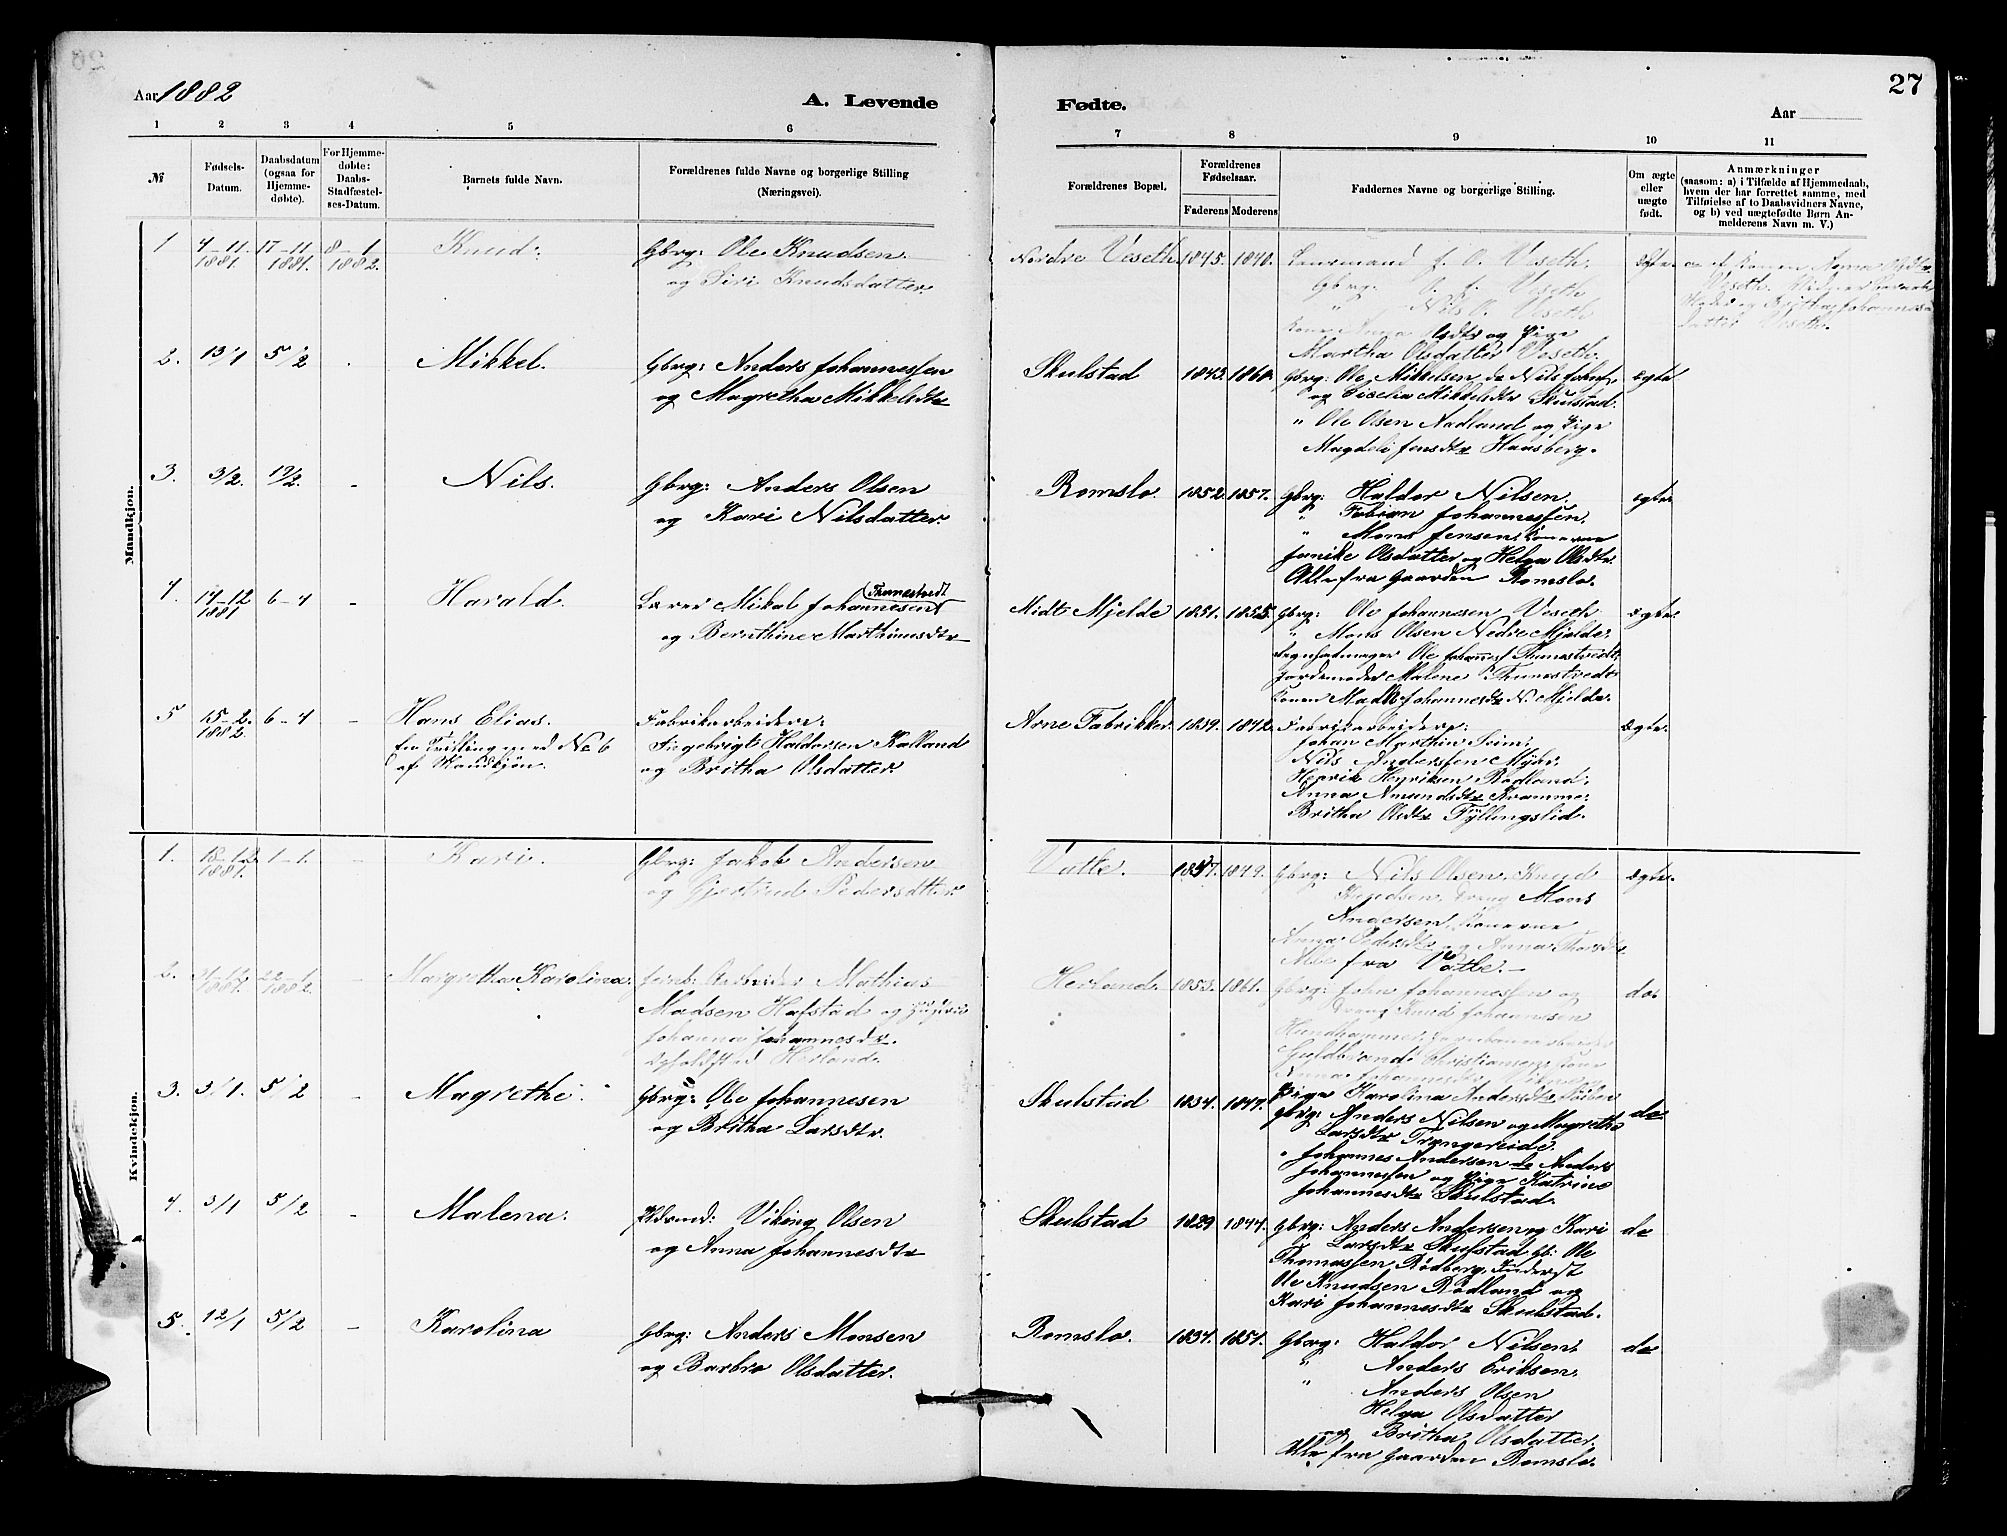 27
Aar 1882
A. Levende
Fødte.
Aar
1 2 3 4 5 6
7 8 9 10 11
№
Fødsels-
Datum.
Daabsdatum
(ogsaa for
Hjemme-
døbte).
For Hjemme-
døbte:
Daabs-
Stadfæstel-
ses-Datum.
Barnets fulde Navn.
Forældrenes fulde Navne og borgerlige Stilling
(Næringsvei).
Forældrenes Bopæl.
Forældrenes
Fødselsaar.
Faderens Moderens
Faddernes Navne og borgerlige Stilling.
Om ægte
eller
uægte
født.
Anmærkninger
(saasom: a) i Tilfælde af Hjemmedaab,
hvem der har forrettet samme, med
Tilføielse af to Daabsvidners Navne,
og b) ved uægtefødte Børn An-
melderens Navn m. V.)
Mandkjøn.
1 4-11. 17-11 8-1 Knud.
1881. 1881. 1882.
Gbrg: Ole Knudsen
og Siri Knudsdatter.
Nordre Veseth. 1845. 1840.
Lensmand J. O. Veseth.
Gbrg: O. J. Veseth
" Nils O. Veseth
Kone Anna Olsdtr og Pige
Martha Olsdatter Veseth.
Ægte.
af Konen Anna Olsdtr
Veseth.
og Britha Johannes-
datter Veseth.
2. 13/1 5/2 Mikkel.
Gbrg: Anders Johannessen
og Magretha Mikkelsdtr
Skulstad 1843. 1860.
Gbrg: Ole Mikkelsen do Nils Johns.
og Cicelia Mikkelsdtr Skulstad.
" Ole Olsen Nadland og Pige
Magdeli Jensdtr Haasberg.
ægte
3. 3/2. 19/2. - Nils.
Gbrg: Anders Olsen
og Kari Nilsdatter.
Romslo. 1852. 1857.
Gbrg: Haldor Nilsen.
" Fabian Johannessen.
" Mons Jensen, Konerne
Janike Olsdatter og Helga Olsdtr.
Alle fra Gaarden Romslo.
ægte.
4. 14-12 6-4 - Harald.
1881
Lærer Mikal Johannesen (Tunestvedt
og Bernthine Marthinusdtr
Midt Mjelde 1851. 1855.
Gbrg: Ole Johannesen Veseth
" Mons Olsen Nedre Mjelde.
Ole Johanness Tunestvedt.
Jordemoder Malene Tunestvedt
Konen Madli Johannesdtr N. Mjelde.
ægte.
5 15-2. 6-4 - Hans Elias.
1882.
En Tvilling med No 6
af Mandkjøn.
Fabrikarbeider:
Siegebrigt Haldorsen Kalland
og Britha Olsdatter.
Arne Fabrikker. 1839. 1842.
Fabrikarbeidere:
Johan Marthin
Nils Anderssen Myhr.
Henrik Henriksen Rødland.
Anna Amundsdtr
Britha Olsdtr Fyllingslid.
Ægte.
Kvindekjøn.
1. 18-12. 1-1. - Kari.
1881.
Gbrg: Jakob Andersen
og Gjertrud Pedersdtter
Vatle. 1847. 1849.
Gbrg: Nils Olsen, Knud
Knudsen, Dreng Mons
Andersen, Konerne
Anna Pedersdtr og Anna Thorsdtr
Alle fra Vatle.-
Ægte.
2. 31-12 22-1 - Magretha Karolina,
1881. 1882.
Jernb: Arbeider Mathias
Madsen Hafstad og Hustru
Johanna Johannesdtr.
Opholdsted Herland.
Herland. 1853. 1861.
Gbrg: John Johannessen og
Dreng Knud Johannesen
Hundhammer,
Guldbrand Christiansen, Kone
Anna Johannesdtr
Pige Karolina Andersdtr
do.
3. 3/1. 5/2 - Magrethe.
Gbrg: Ole Johannesen
og Britha Larsdtr.
Skulstad 1834. 1847.
Gbrg: Anders Nilsen og Magretha
Larsdtr Trængereide.
" Johannes Andersen do Anders
Johannessen og Pige Katrine
Johannesdtr Skulstad.
do
4. 3/1 5/2 - Malena.
Viking Olsen
og Anna Johannesdtr
Skulstad 1829 1844.
Gbrg: Anders Andersen og Kari
Larsdtr Skulstad Gb: Ole
Thomassen Rødberg, Inderst
Ole Knudsen Rødland og
Kari Johannesdtr Skulstad.
do
5. 12/1 5/2 - Karolina
Gbrg: Anders Monsen
og Barbro Olsdatter.
Romslo. 1834. 1851.
Gbrg: Haldor Nilsen,
" Anders Eriksen.
" Anders Olsen
Helga Olsdatter
og Britha Olsdatter.
Alle fra Gaarden Romslo.
do